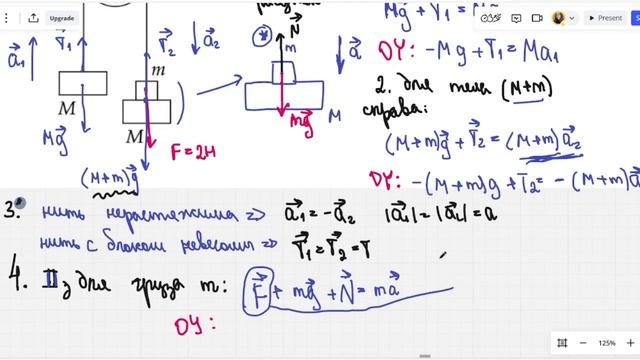 Upgrade
Present
125%
Mg + T₁ = M
a₁ T₁ T₂ a₂ N a
m
M
M
Mg
F = 2Н
(M+m)g
m
mg
M
OY: -Mg + T₁ = Ma₁
2. для тела (M+m)
справа:
(M+m)g + T₂ = (M+m)a₂
OY: -(M+m)g + T₂ = -(M+m)a
3. нить нерастяжима => a₁ = -a₂ |a₁| = |a₂| = a
нить с блоком невесомы => T₁ = T₂ = T
4. II з для груза m: F + mg + N = ma
OY: